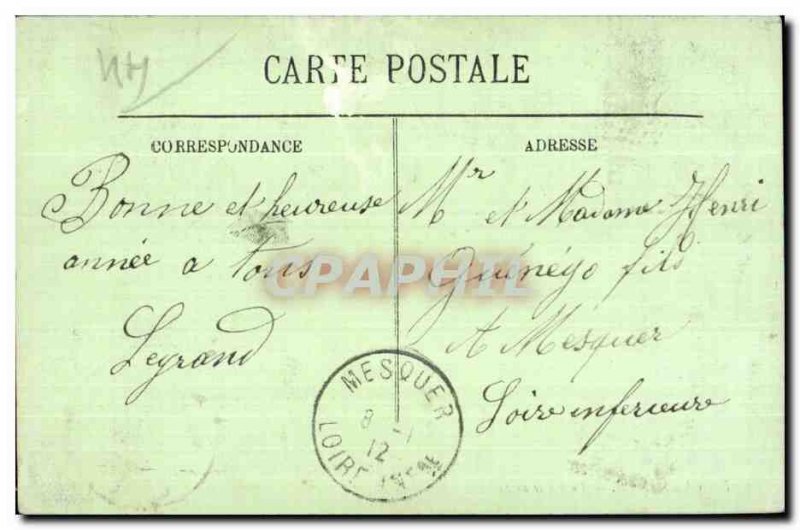 44
CARTE POSTALE
CORRESPONDANCE
Bonne et heureuse
année a tous
Legrand
ADRESSE
Mr et Madame Henri
Guénégo fils
A Mesquer
Loire inferieure
MESQUER
8 -1
12
LOIRE INFRE
CPAPHIL